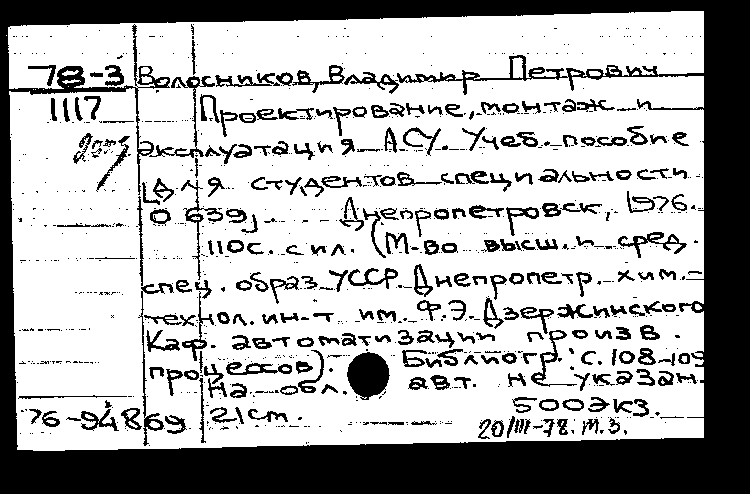 78-3 Волосников, Владимир Петрович
1117 Проектирование, монтаж и
эксплуатация АСУ. Учеб. пособие
[Для студентов специальности
0 639]. Днепропетровск, 1976.
110с. с ил. (М-во высш. и сред.
спец. образ. УССР. Днепропетр. хим.-
технол. ин-т им. Ф.Э. Дзержинского
Каф. автоматизации произв.
процессов). Библиогр.: с. 108-109
На обл. авт. не указан.
500экз.
76-94869 21cm.
20/III-78. М.З.